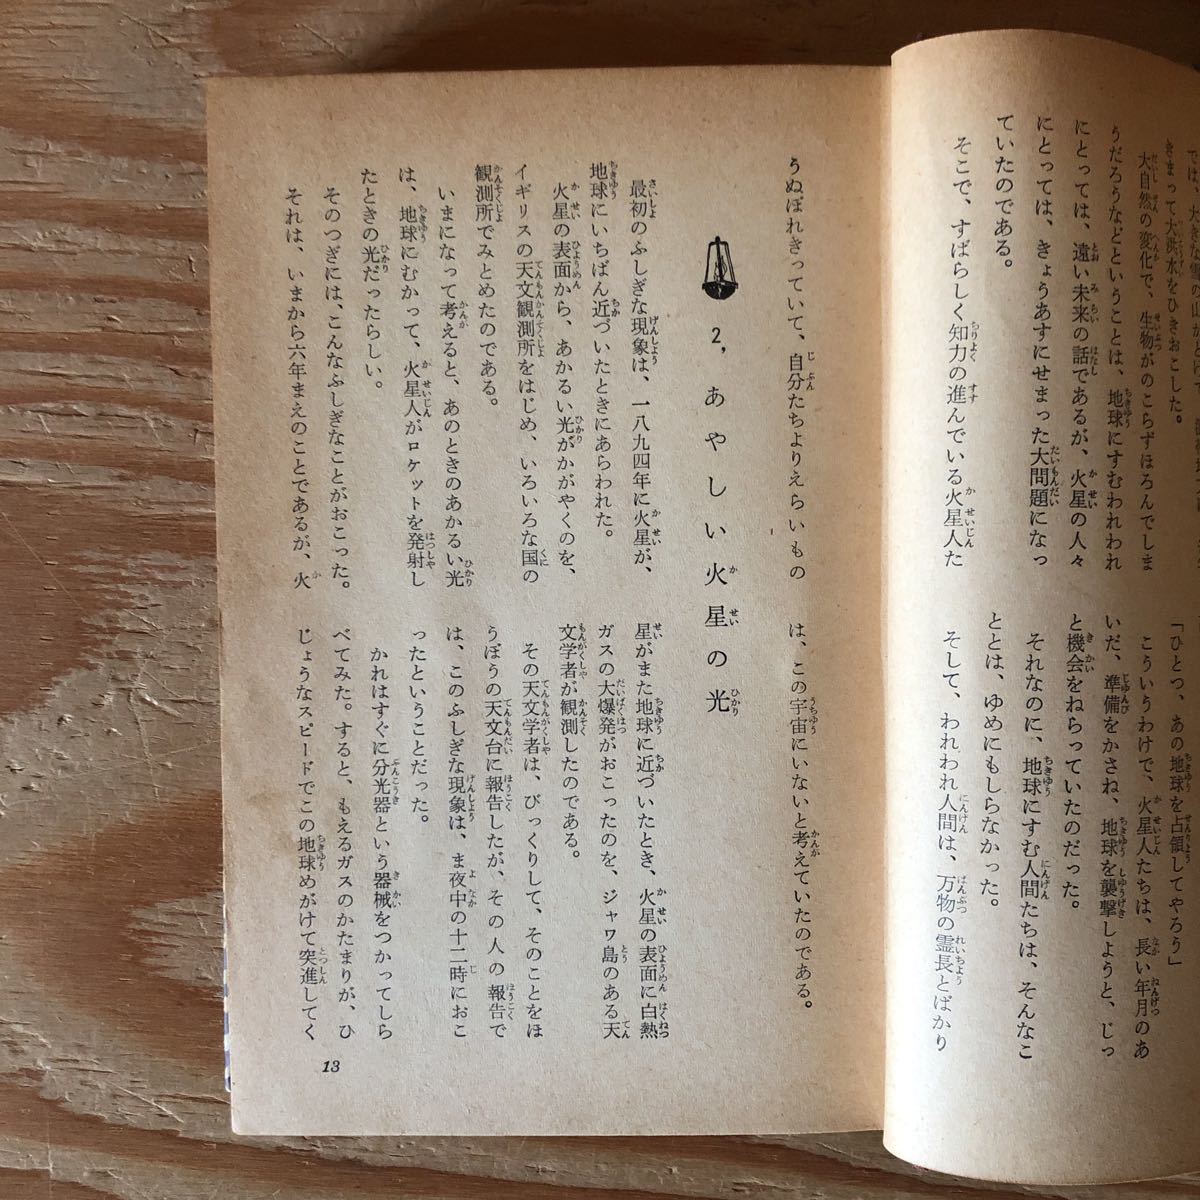 では、大きな
きまって大洪水をひきおこした。
大自然の変化で、生物がのこらずほろんでしま
うだろうなどということは、地球にすむわれわれ
にとっては、遠い未来の話であるが、火星の人々
にとっては、きょうあすにせまった大問題になっ
ていたのである。
そこで、すばらしく知力の進んでいる火星人た
「ひとつ、あの地球を占領してやろう」
こういうわけで、火星人たちは、長い年月のあ
いだ、準備をかさね、地球を襲撃しようと、じっ
と機会をねらっていたのだった。
それなのに、地球にすむ人間たちは、そんなこ
ととは、ゆめにもしらなかった。
そして、われわれ人間は、万物の霊長とばかり
うぬぼれきっていて、自分たちよりえらいもの
は、この宇宙にいないと考えていたのである。
2，あやしい火星の光
最初のふしぎな現象は、一八九四年に火星が、
地球にいちばん近づいたときにあらわれた。
火星の表面から、あかるい光がかがやくのを、
イギリスの天文観測所をはじめ、いろいろな国の
観測所でみとめたのである。
いまになって考えると、あのときのあかるい光
は、地球にむかって、火星人がロケットを発射し
たときの光だったらしい。
そのつぎには、こんなふしぎなことがおこった。
それは、いまから六年まえのことであるが、火
星がまた地球に近づいたとき、火星の表面に白熱
ガスの大爆発がおこったのを、ジャワ島のある天
文学者が観測したのである。
その天文学者は、びっくりして、そのことをほ
うぼうの天文台に報告したが、その人の報告で
は、このふしぎな現象は、ま夜中の十二時におこ
ったということだった。
かれはすぐに分光器という器械をつかってしら
べてみた。すると、もえるガスのかたまりが、ひ
じょうなスピードでこの地球めがけて突進してく
13